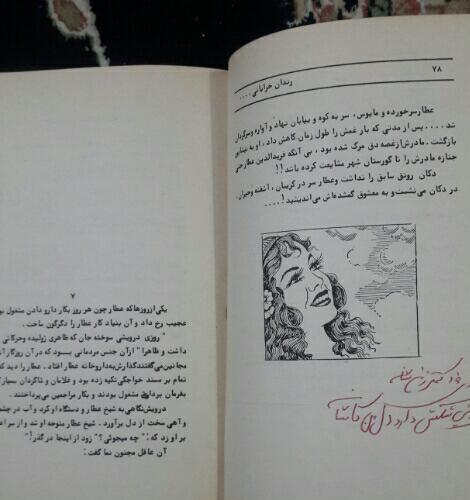 ۷۸
رندان خراباتی ....
عطار سرخورده و مأیوس، سر به کوه و بیابان نهاد و آواره و سرگردان
شد .... پس از مدتی که بار غمش را طول زمان کاهش داد، او به
بازگشت. مادرش از غصه دق مرگ شده بود، بی آنکه فریدالدین عطار حتی
جنازه مادرش را تا گورستان شهر مشایعت کرده باشد!!
دکان رونق سابق را نداشت و عطار سر در گریبان، آشفته و حیران،
در دکان می‌نشست و به معشوق گمشده‌اش می‌اندیشید!....
۷
یکی از روزها که عطار چون هر روز بکار دارو دادن مشغول بود
عجیب رخ داد و آن بنیاد کار عطار را دگرگون ساخت.
" روزی درویشی سوخته جان که ظاهری ژولیده و حرکاتی
داشت و ظاهرا" از آن جنس مردمانی بسود که در آن روزگار
مجانین می‌گفتند گذارش به داروخانه عطار افتاد. عطار را دید که
تمام بر مسند خواجگی تکیه زده بود و غلامان و شاگردان بسیار
بفرمان برداری مشغول بودند و بکار مراجعین می‌پرداختند.
درویش نگاهی به شیخ عطار و دستگاه او کرد و آب در چشم
و آهی سخت از دل برآورد. شیخ عطار متوجه او شد و از سر
بر او زد که: " چه میجوئی؟ " زود از اینجا در گذر!"
آن عاقل مجنون نما گفت: